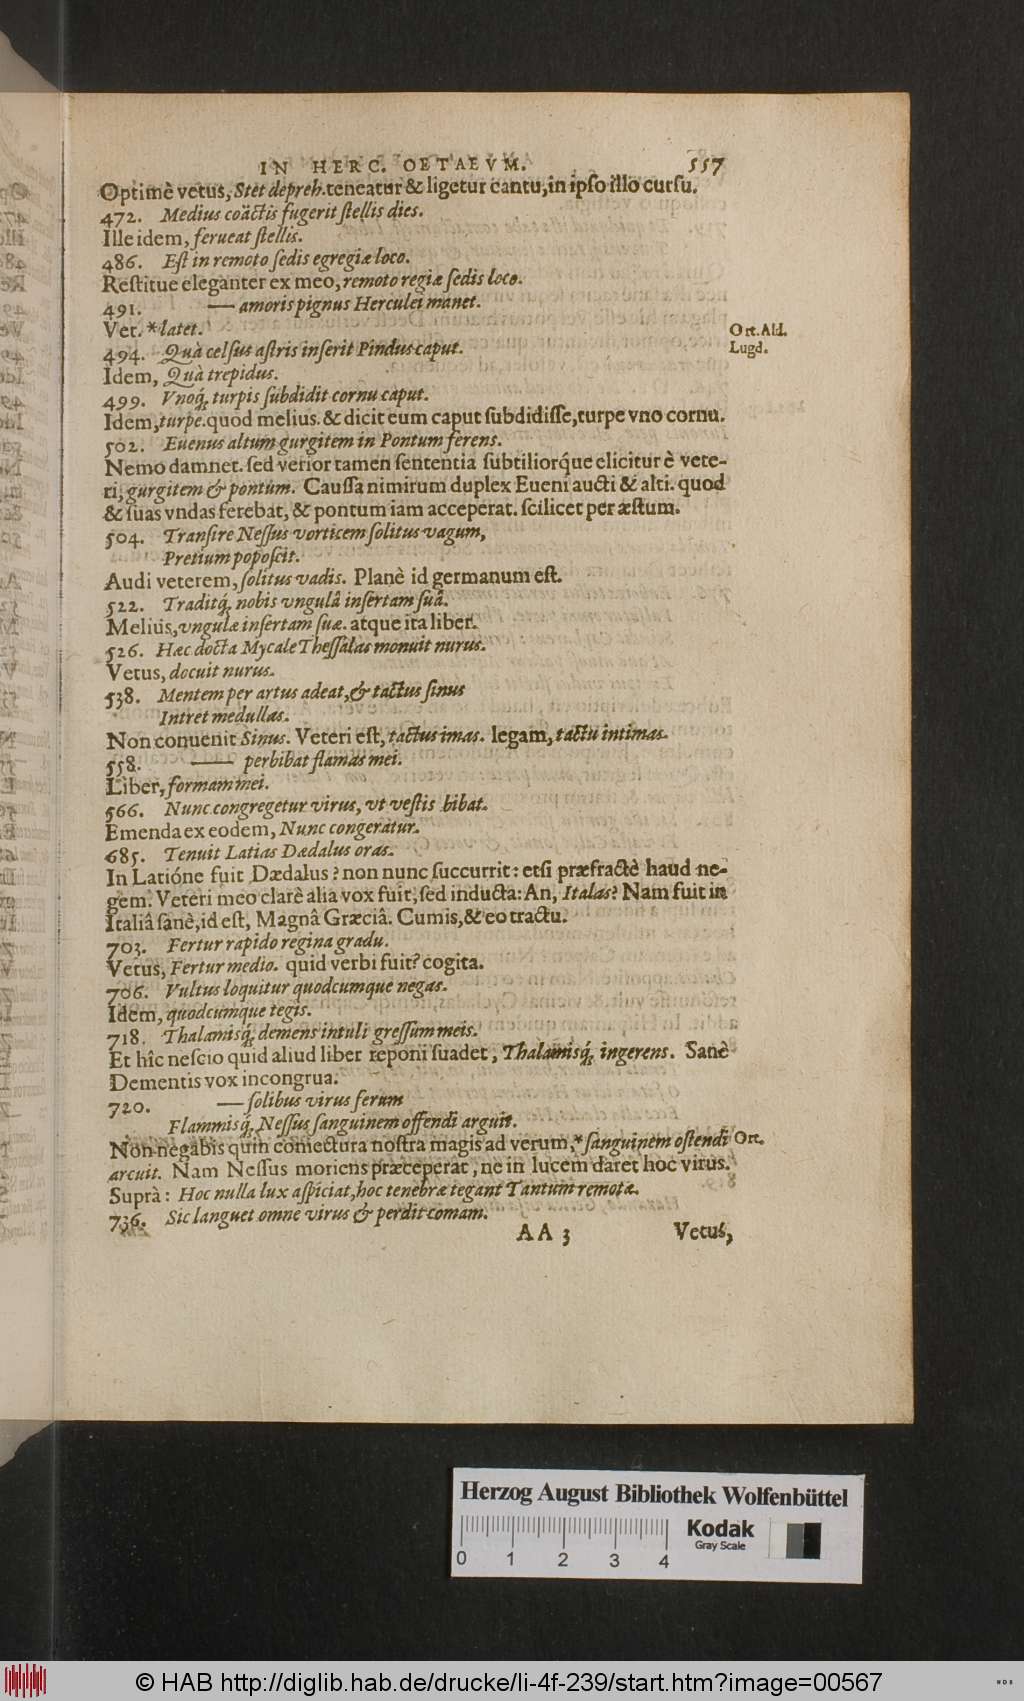 IN HERC. OETAEVM. 557
Optimè vetus, Stet depreh. teneatur & ligetur cantu, in ipso illo cursu.
472. Medius coäctis fugerit stellis dies.
Ille idem, ferueat stellis.
486. Est in remoto sedis egregiæ loco.
Restitue eleganter ex meo, remoto regiæ sedis loco.
491. —— amoris pignus Herculei manet.
Vet. * latet. Ort. Ald. Lugd.
494. Quà celsus astris inserit Pindus caput.
Idem, Quà trepidus.
499. Vnoq́; turpis subdidit cornu caput.
Idem, turpe. quod melius. & dicit eum caput subdidisse, turpe vno cornu.
502. Euenus altum gurgitem in Pontum ferens.
Nemo damnet. sed verior tamen sententia subtiliorq́ue elicitur è vete-
ri, gurgitem & pontum. Caussa nimirum duplex Eueni aucti & alti. quod
& suas vndas ferebat, & pontum iam acceperat. scilicet per æstum.
504. Transire Nessus vorticem solitus vagum,
Pretium poposcit.
Audi veterem, solitus vadis. Planè id germanum est.
522. Traditq́; nobis vngulâ insertam suâ.
Meliùs, vngulæ insertam suæ. atque ita liber.
526. Hæc docta Mycale Thessalas monuit nurus.
Vetus, docuit nurus.
538. Mentem per artus adeat, & tactus sinus
Intret medullas.
Non conuenit Sinus. Veteri est, tactus imas. legam, tactu intimas.
558. —— perbibat flamas mei.
Liber, formam mei.
566. Nunc congregetur virus, vt vestis bibat.
Emenda ex eodem, Nunc congeratur.
685. Tenuit Latias Dædalus oras.
In Latióne fuit Dædalus? non nunc succurrit: etsi præfractè haud ne-
gem. Veteri meo clarè alia vox fuit, sed inducta: An, Italas? Nam fuit in
Italiâ sanè, id est, Magnâ Græciâ. Cumis, & eo tractu.
703. Fertur rapido regina gradu.
Vetus, Fertur medio. quid verbi fuit? cogita.
706. Vultus loquitur quodcumque negas.
Idem, quodcumque tegis.
718. Thalamisq́; demens intuli gressum meis.
Et hîc nescio quid aliud liber reponi suadet, Thalamisq́; ingerens. Sanè
Dementis vox incongrua.
720. —— solibus virus ferum
Flammisq́; Nessus sanguinem offendi arguit.
Non negabis quin coniectura nostra magis ad verum, * sanguinem ostendi Ort.
arcuit. Nam Nessus moriens præceperat, ne in lucem daret hoc virus.
Suprà: Hoc nulla lux aspiciat, hoc tenebræ tegant Tantum remotæ.
736. Sic languet omne virus & perdit comam.
AA 3 Vetus,
Herzog August Bibliothek Wolfenbüttel
0 1 2 3 4
Kodak
Gray Scale
© HAB http://diglib.hab.de/drucke/li-4f-239/start.htm?image=00567